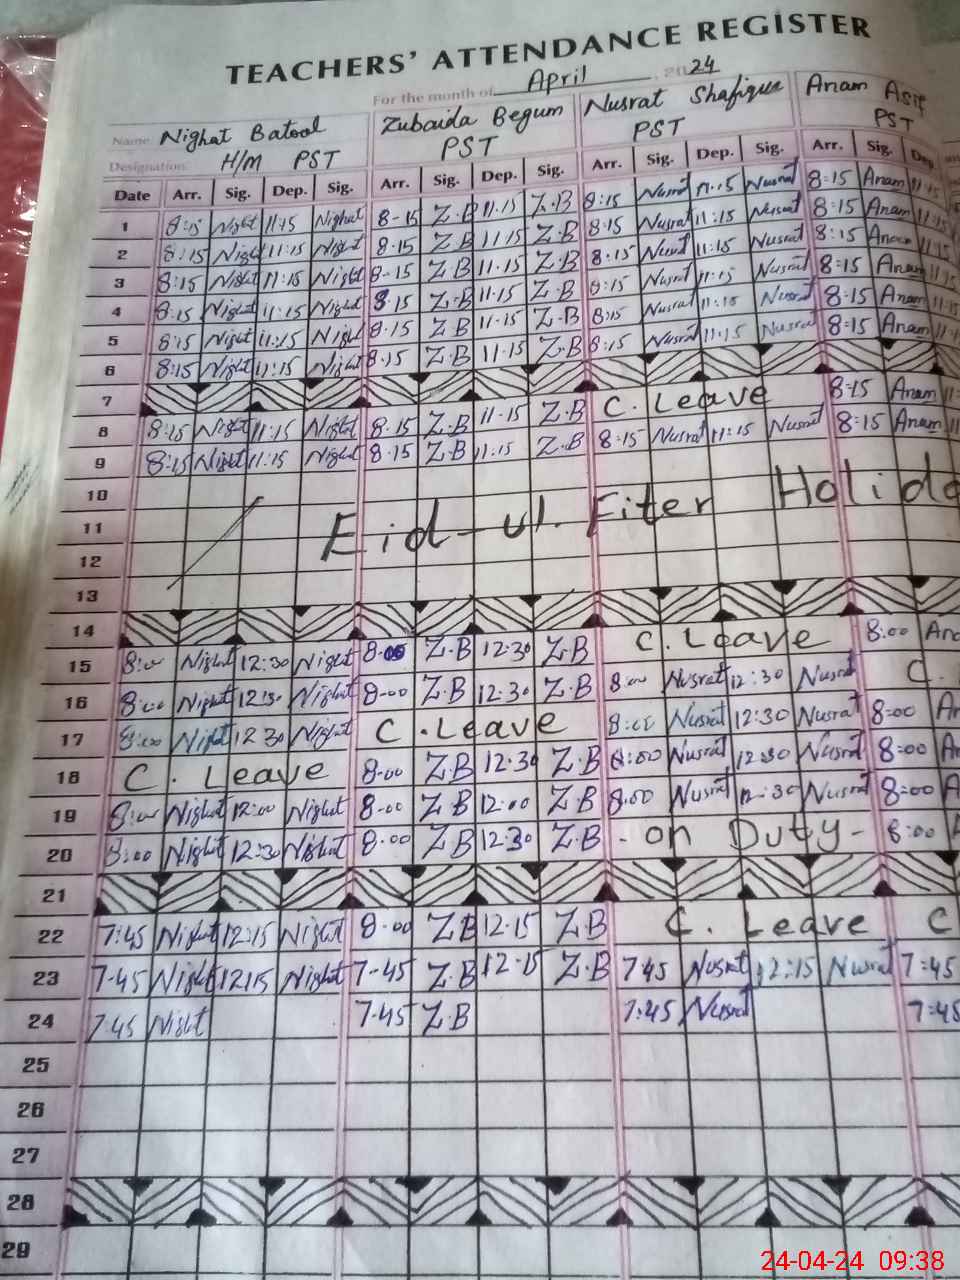 TEACHERS' ATTENDANCE REGISTER
For the month of April, 2024
Name Nighat Batool Zubaida Begum Nusrat Shafique Anam Asif
Designation: H/M PST PST PST PST
Date Arr. Sig. Dep. Sig. Arr. Sig. Dep. Sig. Arr. Sig. Dep. Sig. Arr. Sig. Dep.
1 8:15 Night 11:15 Nighat 8-15 Z.B 11.15 Z.B 8:15 Nusrat 11:15 Nusrat 8:15 Anam 11:15
2 8:15 Night 11:15 Night 8.15 Z.B 11.15 Z.B 8:15 Nusrat 11:15 Nusrat 8:15 Anam 11:15
3 8:15 Night 11:15 Night 8-15 Z.B 11.15 Z.B 8:15 Nusrat 11:15 Nusrat 8:15 Anam 11:15
4 8:15 Night 11:15 Night 8.15 Z.B 11.15 Z.B 8:15 Nusrat 11:15 Nusrat 8:15 Anam 11:15
5 8:15 Night 11:15 Night 8.15 Z.B 11.15 Z.B 8:15 Nusrat 11:15 Nusrat 8:15 Anam 11:15
6 8:15 Night 11:15 Night 8.15 Z.B 11.15 Z.B 8:15 Nusrat 11:15 Nusrat 8:15 Anam 11:15
7
8 8:15 Night 11:15 Night 8.15 Z.B 11.15 Z.B C. Leave 8:15 Anam 11:
9 8:15 Night 11:15 Night 8.15 Z.B 11.15 Z.B 8:15 Nusrat 11:15 Nusrat 8:15 Anam 11
10
11 Eid-ul. Fiter Holida
12
13
14
15 8:00 Night 12:30 Night 8.00 Z.B 12.30 Z.B C. Leave 8:00 Ana
16 8:00 Night 12:30 Night 8-00 Z.B 12.30 Z.B 8:00 Nusrat 12:30 Nusrat C.
17 8:00 Night 12 30 Night C. Leave 8:00 Nusrat 12:30 Nusrat 8:00 An
18 C. Leave 8.00 Z.B 12.30 Z.B 8:00 Nusrat 12:30 Nusrat 8:00 A
19 8:00 Night 12:00 Night 8-00 Z.B 12.00 Z.B 8:00 Nusrat 12:30 Nusrat 8:00 A
20 8:00 Night 12:30 Night 8.00 Z.B 12.30 Z.B - on Duty - 8:00 A
21
22 7:45 Night 12:15 Night 8.00 Z.B 12.15 Z.B C. Leave C
23 7-45 Night 12:15 Night 7-45 Z.B 12.15 Z.B 7 45 Nusrat 12:15 Nusrat 7:45
24 7:45 Night 7.45 Z.B 7:45 Nusrat 7:45
25
26
27
28
29
24-04-24 09:38